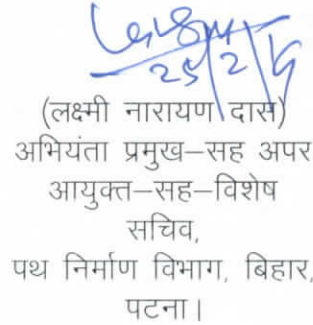 25/2/15
(लक्ष्मी नारायण दास)
अभियंता प्रमुख–सह अपर
आयुक्त–सह–विशेष
सचिव,
पथ निर्माण विभाग, बिहार,
पटना।